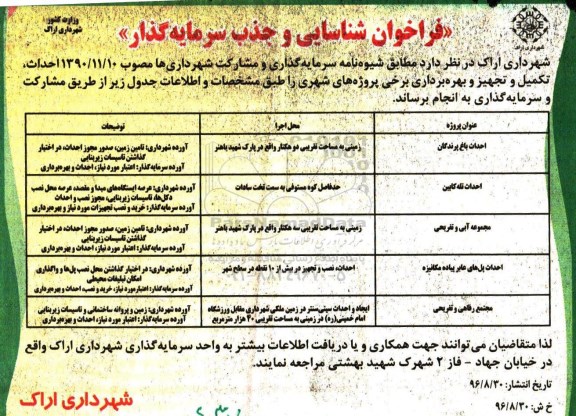 وزارت کشور:
شهرداری اراک
شهرداری اراک
«فراخوان شناسایی و جذب سرمایه‌گذار»
شهرداری اراک در نظر دارد مطابق شیوه‌نامه سرمایه‌گذاری و مشارکت شهرداری‌ها مصوب ۱۳۹۰/۱۱/۱۰ احداث،
تکمیل و تجهیز و بهره‌برداری برخی پروژه‌های شهری را طبق مشخصات و اطلاعات جدول زیر از طریق مشارکت
و سرمایه‌گذاری به انجام برساند.
عنوان پروژه
محل اجرا
توضیحات
احداث باغ پرندگان
زمینی به مساحت تقریبی دو هکتار واقع در پارک شهید باهنر
آورده شهرداری: تامین زمین، صدور مجوز احداث، در اختیار
گذاشتن تاسیسات زیربنایی
آورده سرمایه‌گذار: اعتبار مورد نیاز، احداث و بهره‌برداری
احداث تله‌کابین
حدفاصل کوه مستوفی به سمت تخت سادات
آورده شهرداری: عرصه ایستگاه‌های مبدا و مقصد، عرصه محل نصب
دکل‌ها، تاسیسات زیربنایی، مجوز نصب و احداث
آورده سرمایه‌گذار: خرید و نصب تجهیزات مورد نیاز و بهره‌برداری
مجموعه آبی و تفریحی
زمینی به مساحت تقریبی سه هکتار واقع در پارک شهید باهنر
آورده شهرداری: تامین زمین، صدور مجوز احداث، در اختیار
گذاشتن تاسیسات زیربنایی
آورده سرمایه‌گذار: اعتبار مورد نیاز، احداث و بهره‌برداری
احداث پل‌های عابر پیاده مکانیزه
احداث، نصب و تجهیز در بیش از ۱۰ نقطه در سطح شهر
آورده شهرداری: در اختیار گذاشتن محل نصب پل‌ها و واگذاری
امکان تبلیغات محیطی
آورده سرمایه‌گذار: اعتبار مورد نیاز، خرید و نصب، احداث و بهره‌برداری
مجتمع رفاهی و تفریحی
ایجاد و احداث سیتی‌سنتر در زمین ملکی شهرداری مقابل ورزشگاه
امام خمینی(ره) در زمینی به مساحت تقریبی ۴۰ هزار مترمربع
آورده شهرداری: زمین و پروانه ساختمانی و تاسیسات زیربنایی
آورده سرمایه‌گذار: اعتبار مورد نیاز، احداث و بهره‌برداری
لذا متقاضیان می‌توانند جهت همکاری و یا دریافت اطلاعات بیشتر به واحد سرمایه‌گذاری شهرداری اراک واقع
در خیابان جهاد - فاز ۲ شهرک شهید بهشتی مراجعه نمایند.
تاریخ انتشار: ۹۶/۸/۳۰
خ ش: ۹۶/۸/۳۰
شهرداری اراک